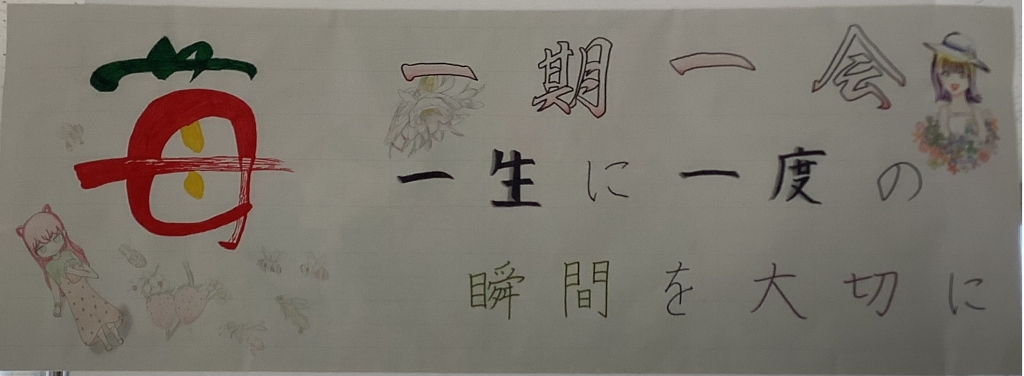 苺
一期一会
一生に一度の
瞬間を大切に